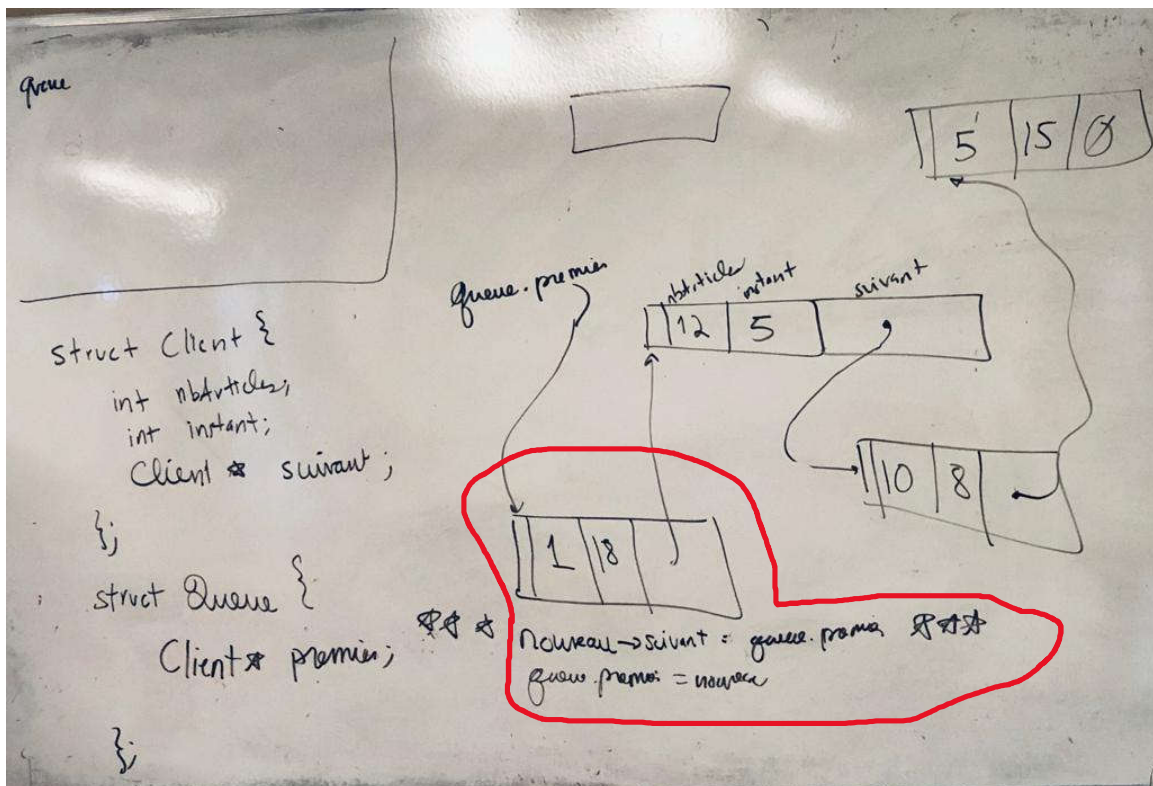 queue
5 15 0
queue.premier
nbArticles instant suivant
12 5
struct Client {
int nbArticles;
int instant;
Client * suivant;
};
10 8
1 18
struct Queue {
Client* premier;
};
*** nouveau->suivant = queue.premier ***
queue.premier = nouveau